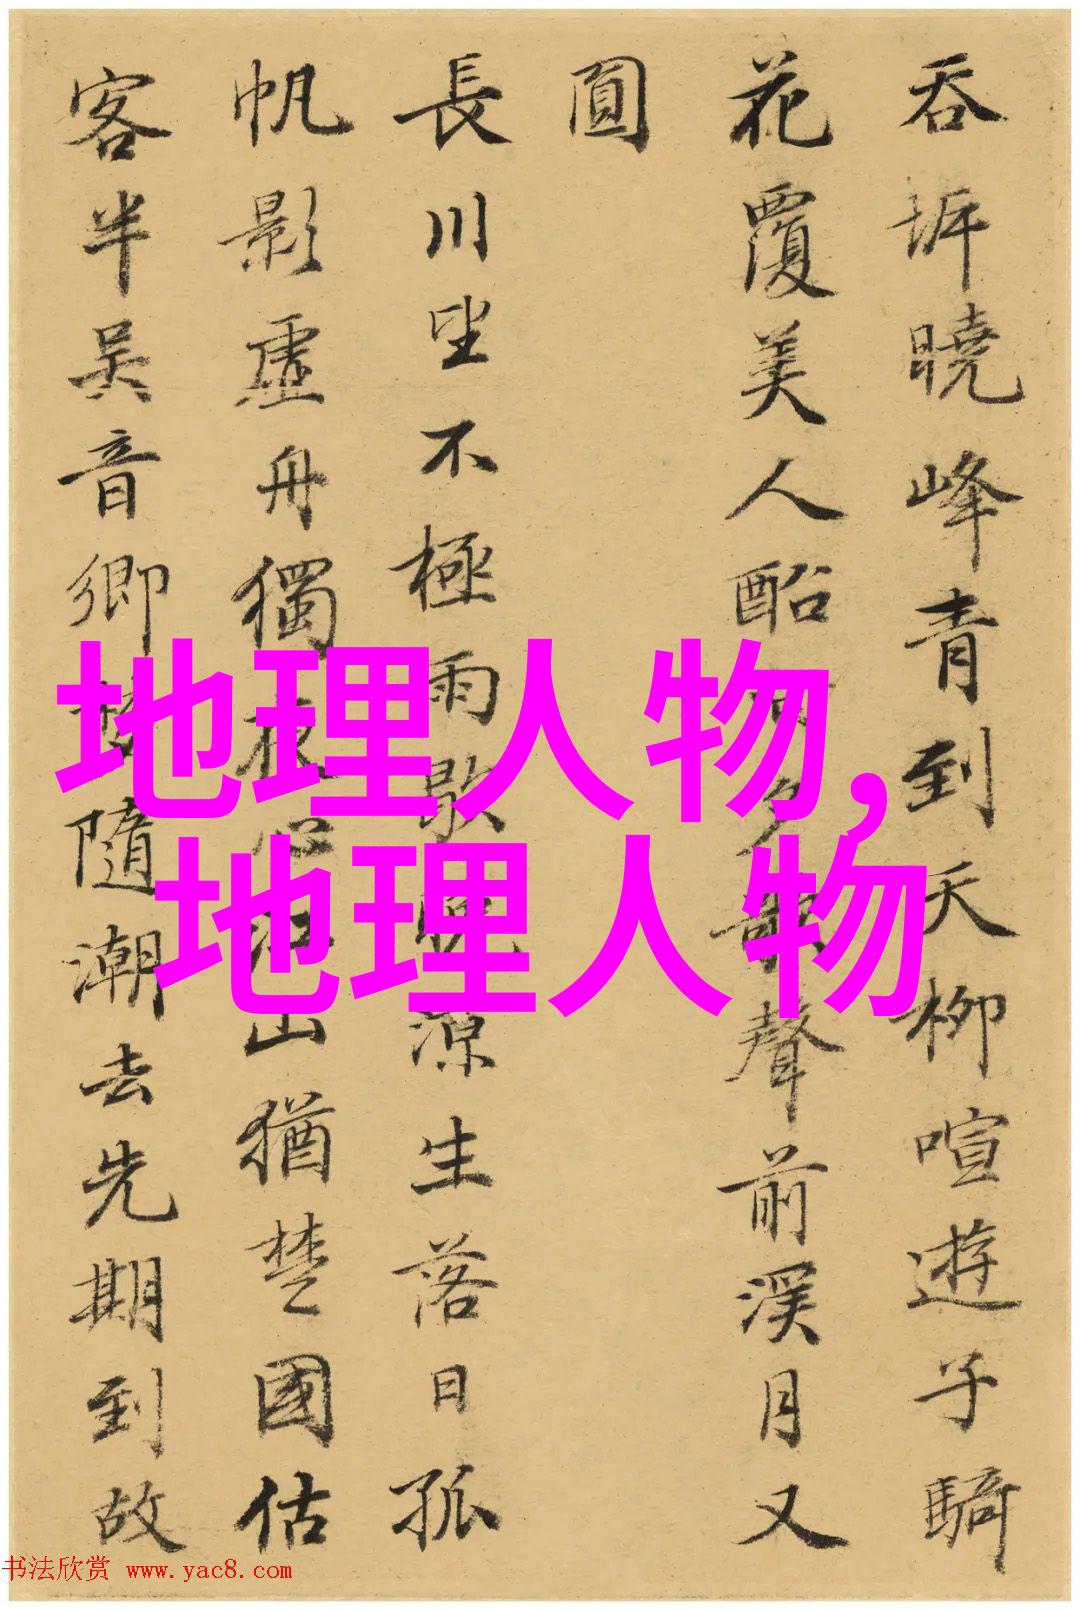 吞坼曉峰青到天柳喧遊子騎
花覆美人酩夕歌聲前溪月又
圓
長川坐不極雨歇涼生落日孤
帆影虛舟獨夜心江山猶楚國估
客半吳音鄉夢隨潮去先期到故
地理人物,
地理人物
书法欣赏 www.yac8.com